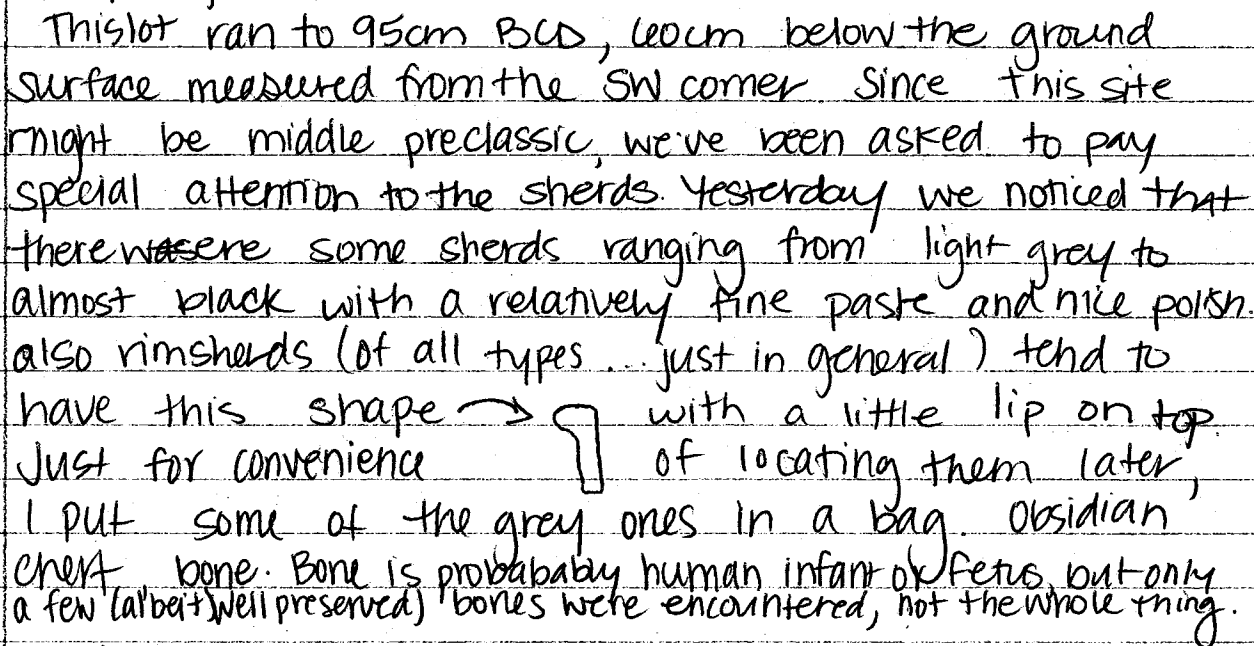 This lot ran to 95cm BCD, 60cm below the ground
surface measured from the SW corner. Since this site
might be middle preclassic, we've been asked to pay
special attention to the sherds. Yesterday we noticed that
there were some sherds ranging from light grey to
almost black with a relatively fine paste and nice polish.
also rimsherds (of all types... just in general) tend to
have this shape → with a little lip on top.
Just for convenience of locating them later,
I put some of the grey ones in a bag. Obsidian
chert, bone. Bone is probababy human infant or fetus, but only
a few (albeit well preserved) bones were encountered, not the whole thing.